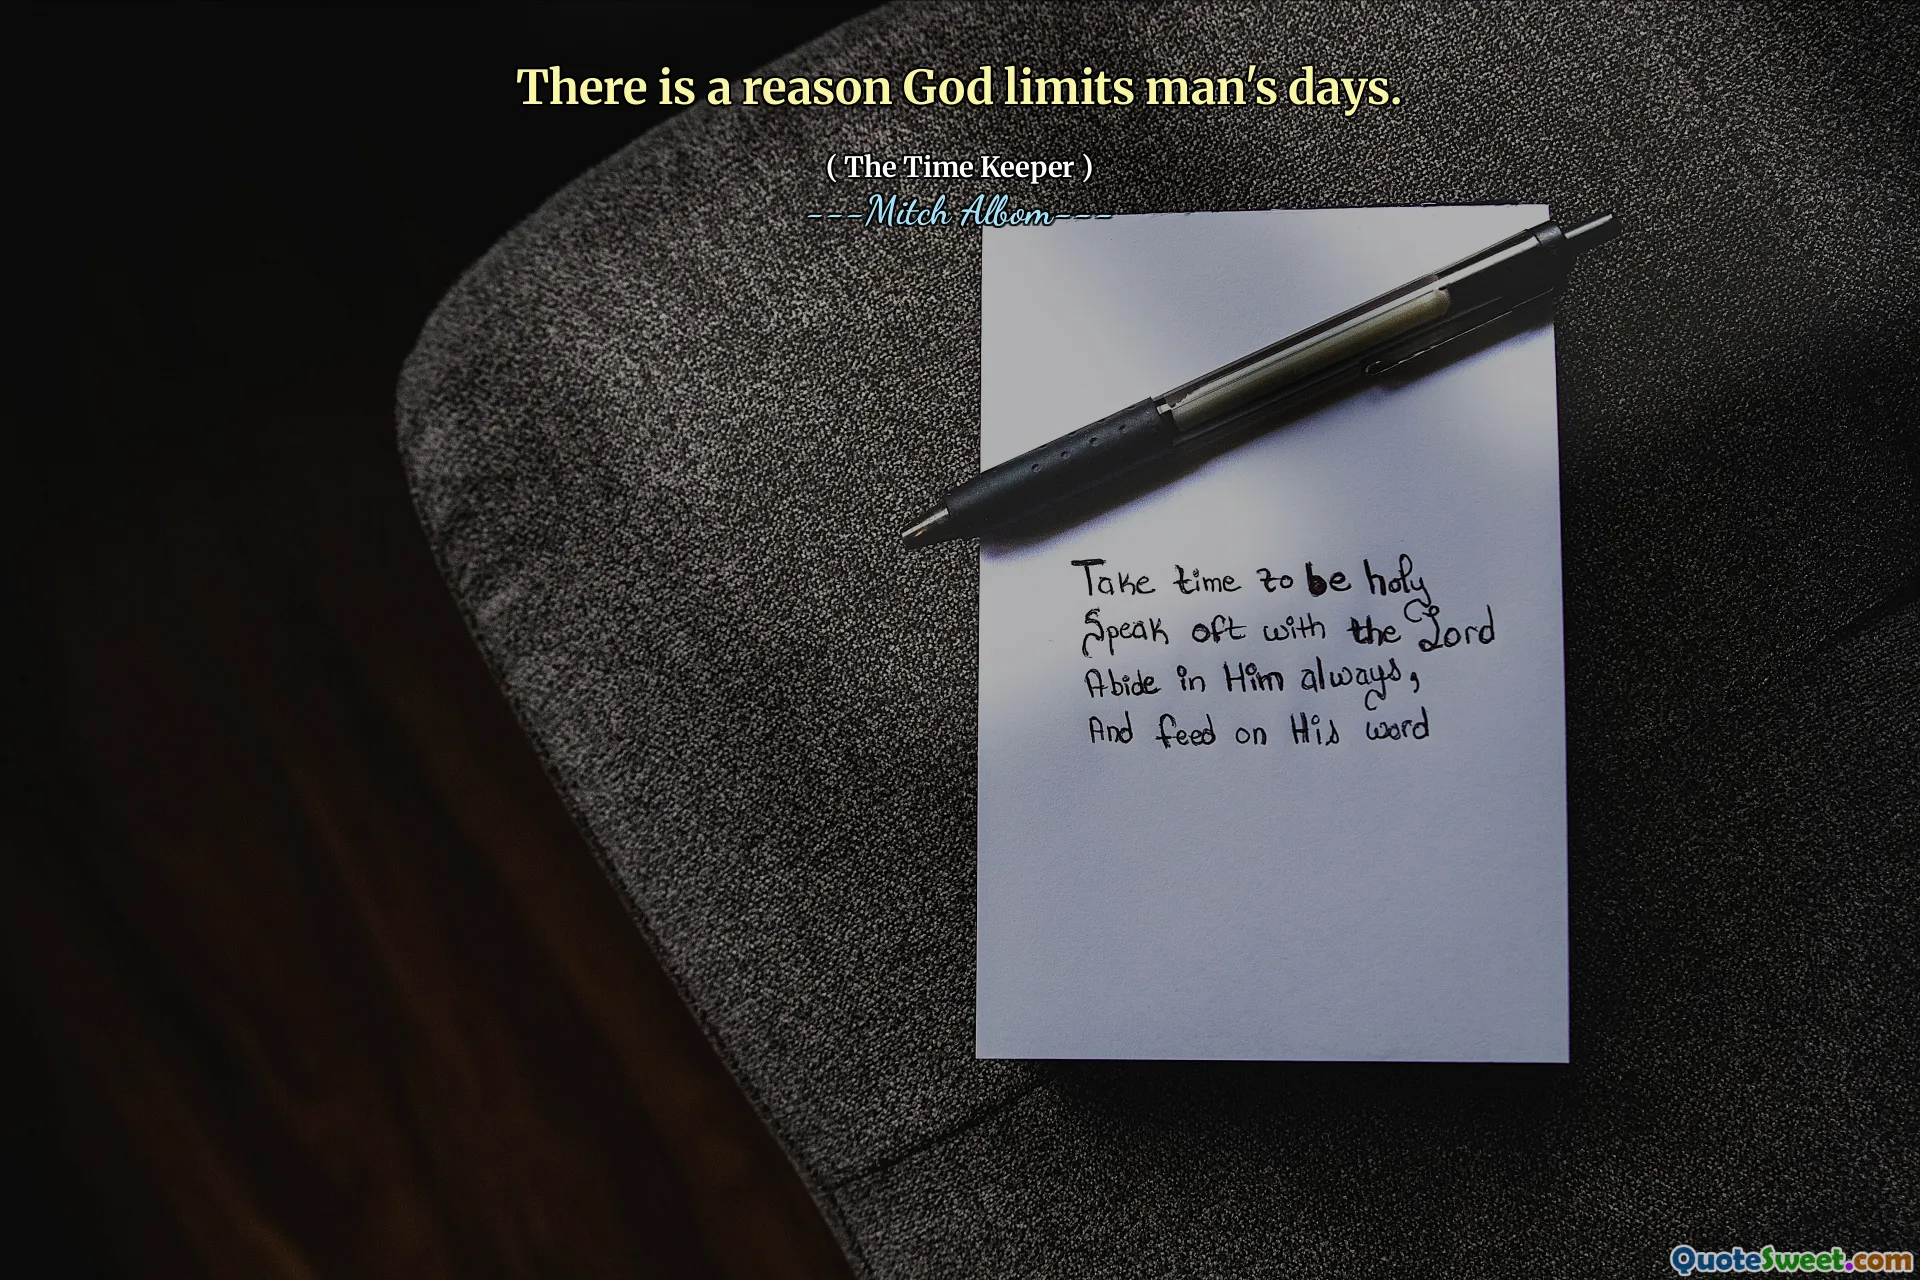 There is a reason God limits man's days.
( The Time Keeper )
---Mitch Albom---
Take time to be holy
Speak oft with the Lord
Abide in Him always,
And feed on His word
QuoteSweet.com